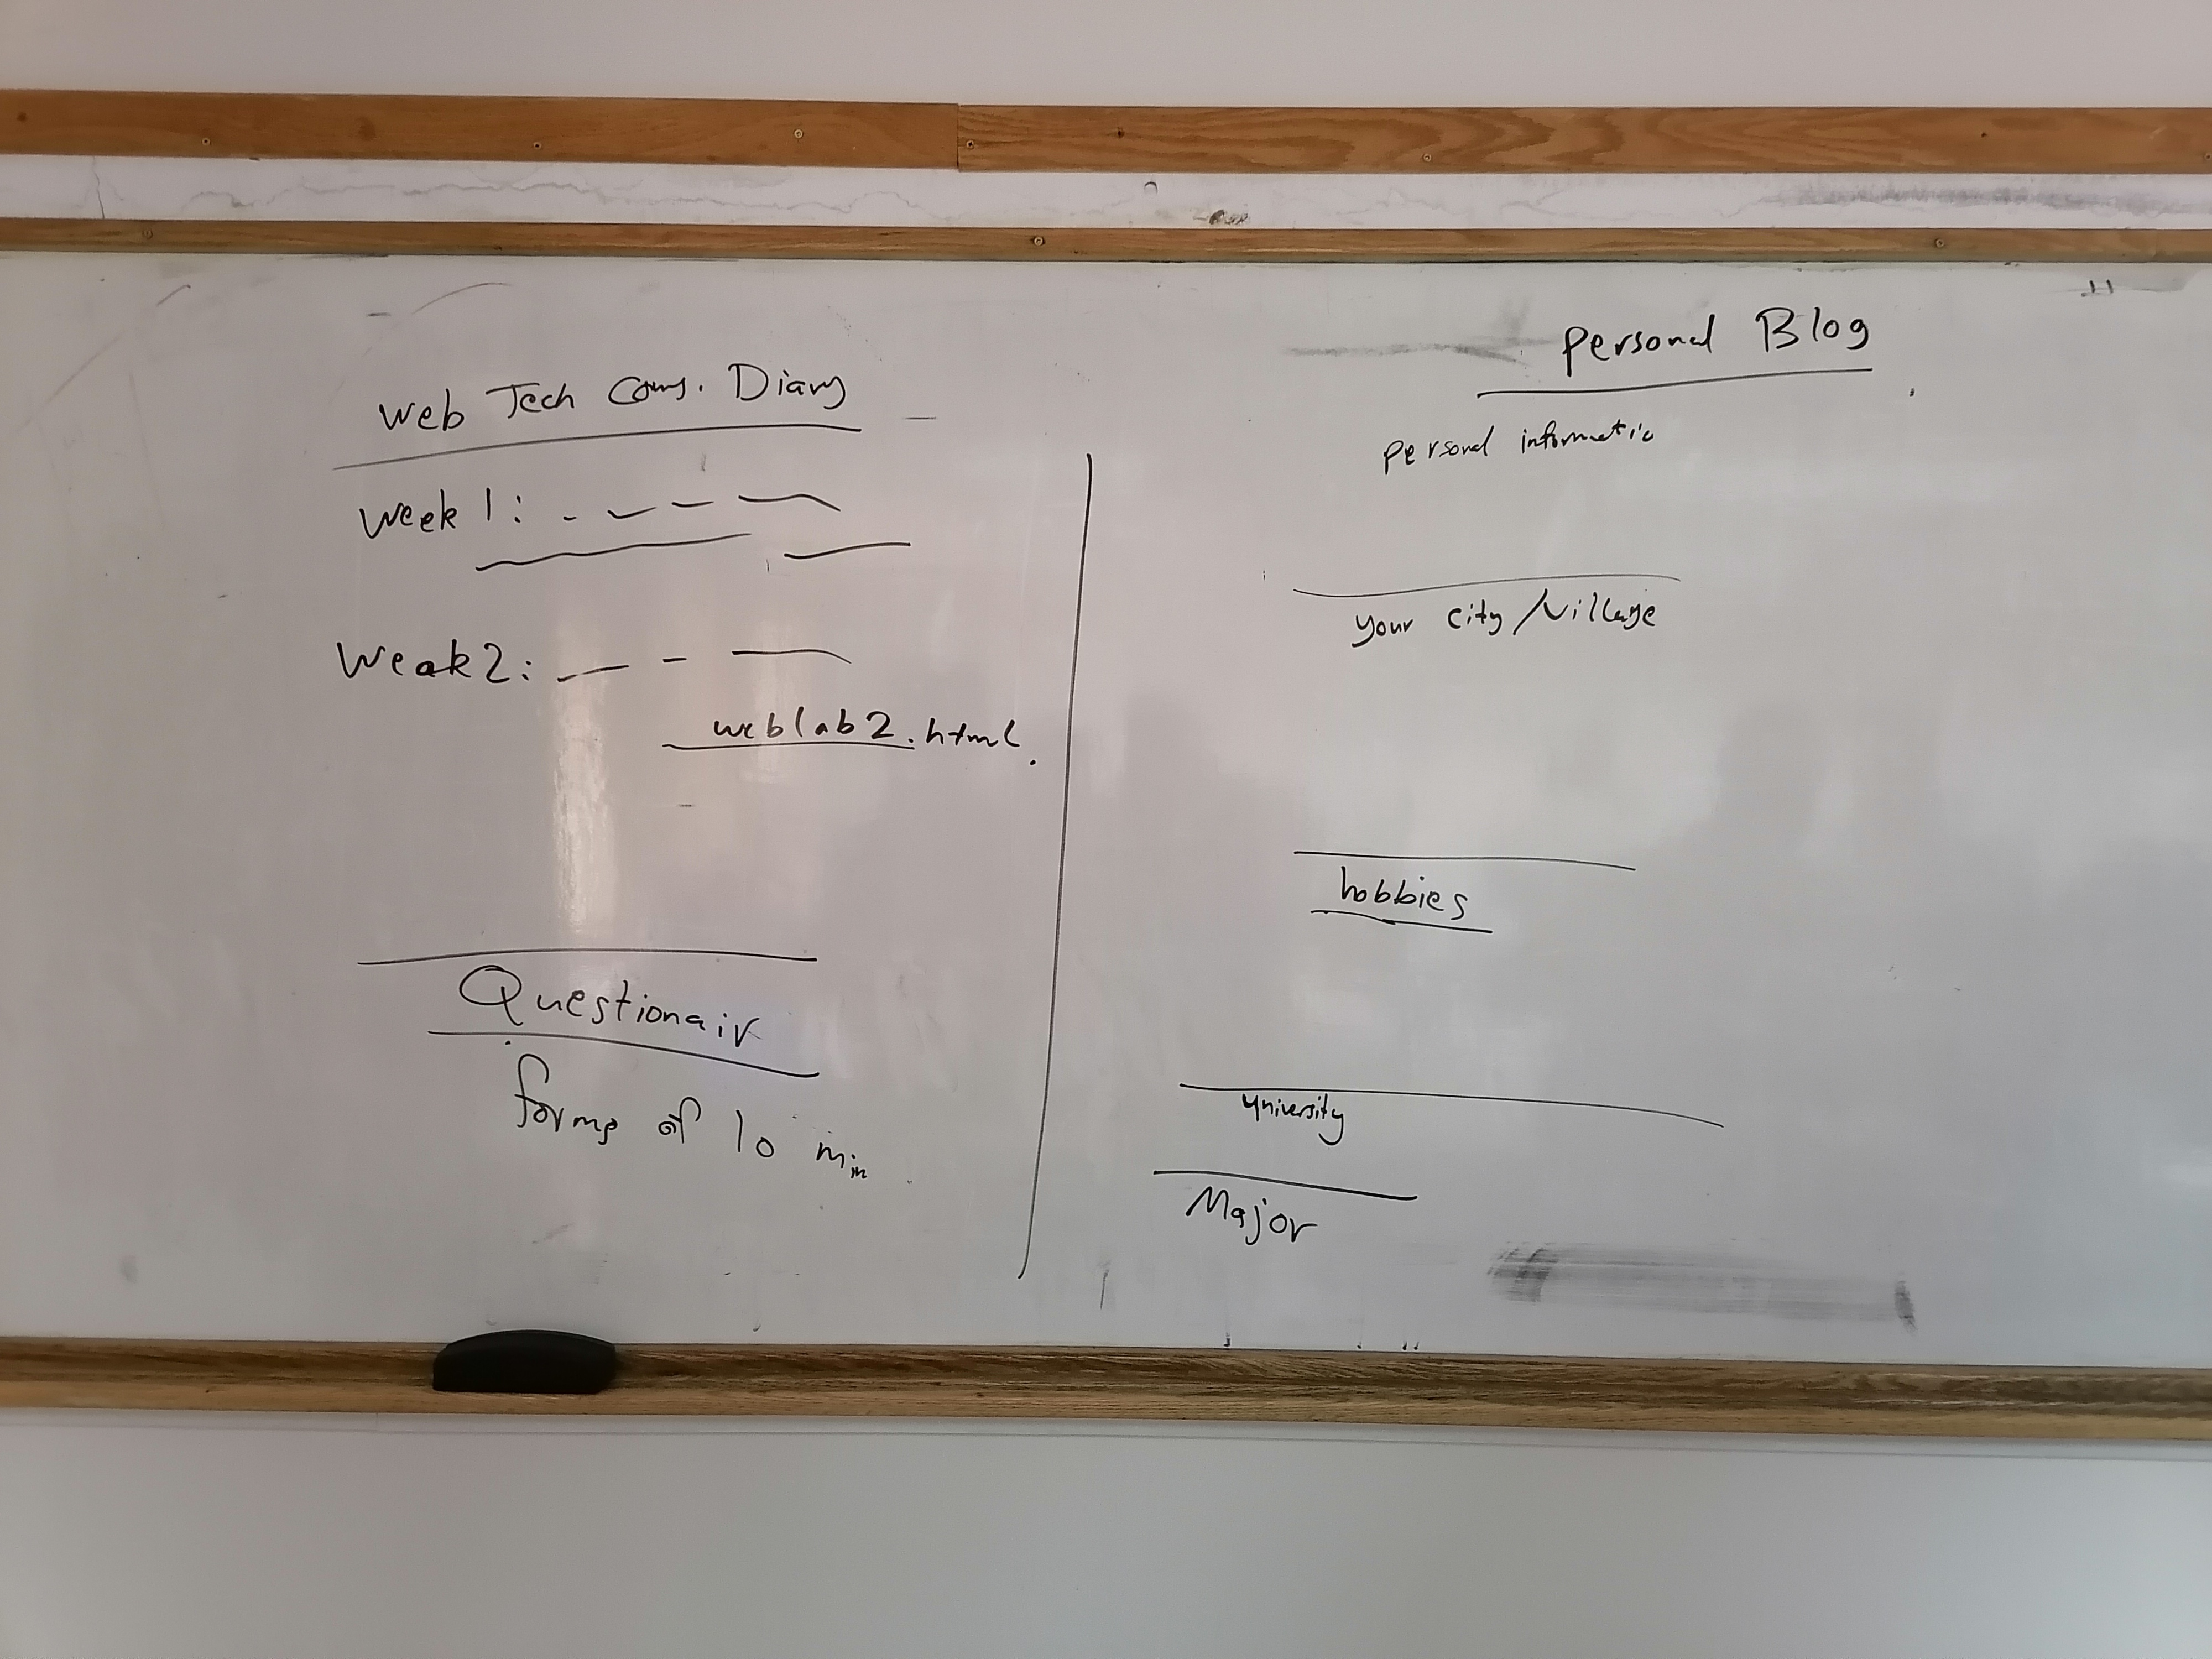 Web Tech Diary
Week 1:
Weak 2:
weblab2.html.
Questionair
forms of 10 min
Personal Blog
Personal informatio
your city/village
hobbies
University
Major